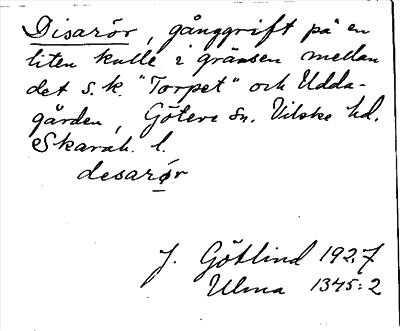 Disarör, gånggrift på en
liten kulle i gränsen mellan
det s.k. "Torpet" och Udda-
gården, Göteve sn. Vilske hd.
Skarab. l.
desarör
J. Götlind 1927
Ulma 1345:2